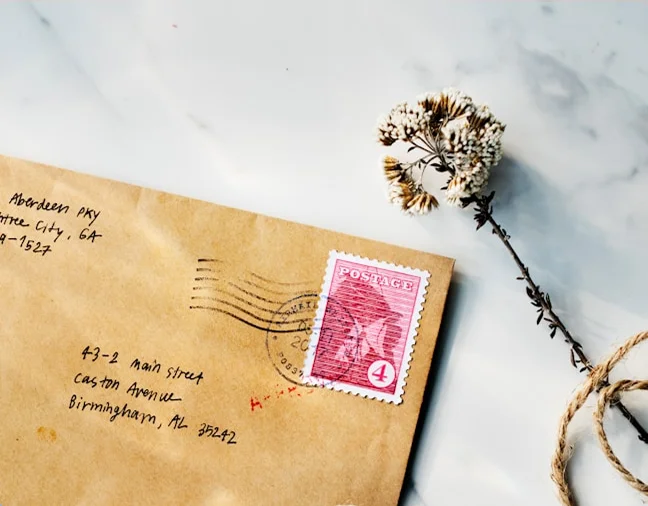 Aberdeen PKY
City, GA
-1527
POSTAGE
4
43-2 main street
Caston Avenue
Birmingham, AL 35242